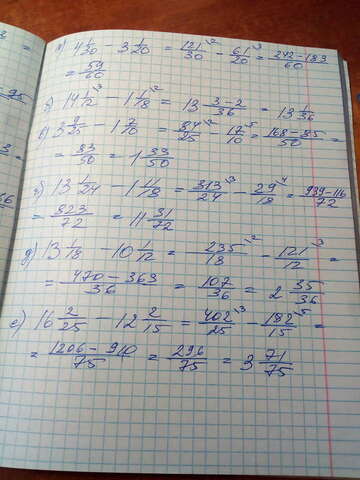 а) 4 1/30 - 3 1/20 = 121/30 \2 - 61/20 \3 = 242-183/60
= 59/60
б) 14 1/12 \3 - 1 1/18 \2 = 13 3-2/36 = 13 1/36
в) 3 9/25 - 1 7/10 = 84/25 \2 - 17/10 \5 = 168-85/50 =
= 83/50 = 1 33/50
г) 13 1/24 - 1 11/18 = 313/24 \3 - 29/18 \4 = 939-116/72
= 823/72 = 11 31/72
д) 13 1/18 - 10 1/12 = 235/18 \2 - 121/12 \3 =
= 470-363/36 = 107/36 = 2 35/36
е) 16 2/25 - 12 2/15 = 402/25 \3 - 182/15 \5 =
= 1206-910/75 = 296/75 = 3 71/75